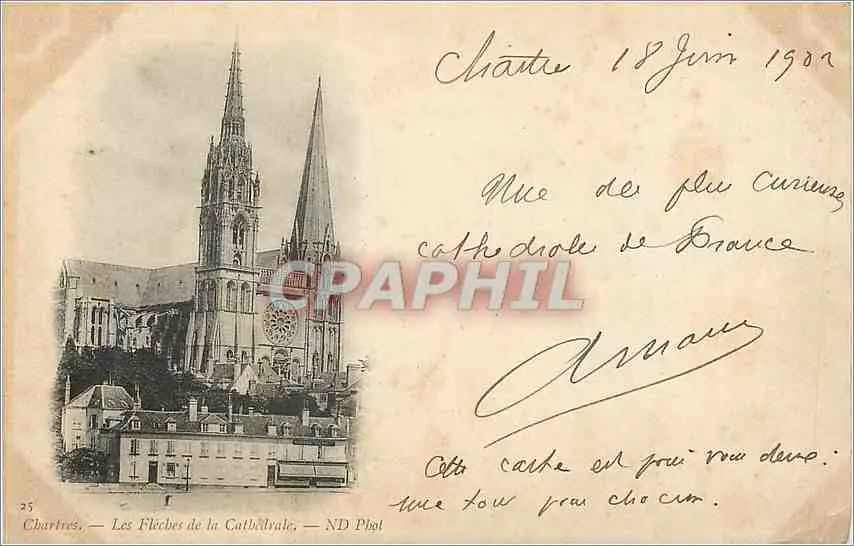 Chartres 18 Juin 1902
Une des plus curieuses
cathédrale de France
CPAPHIL
Armand
Cette carte est pour vous deux:
une tour pour chacun.
25
Chartres. — Les Flèches de la Cathédrale. — ND Phot